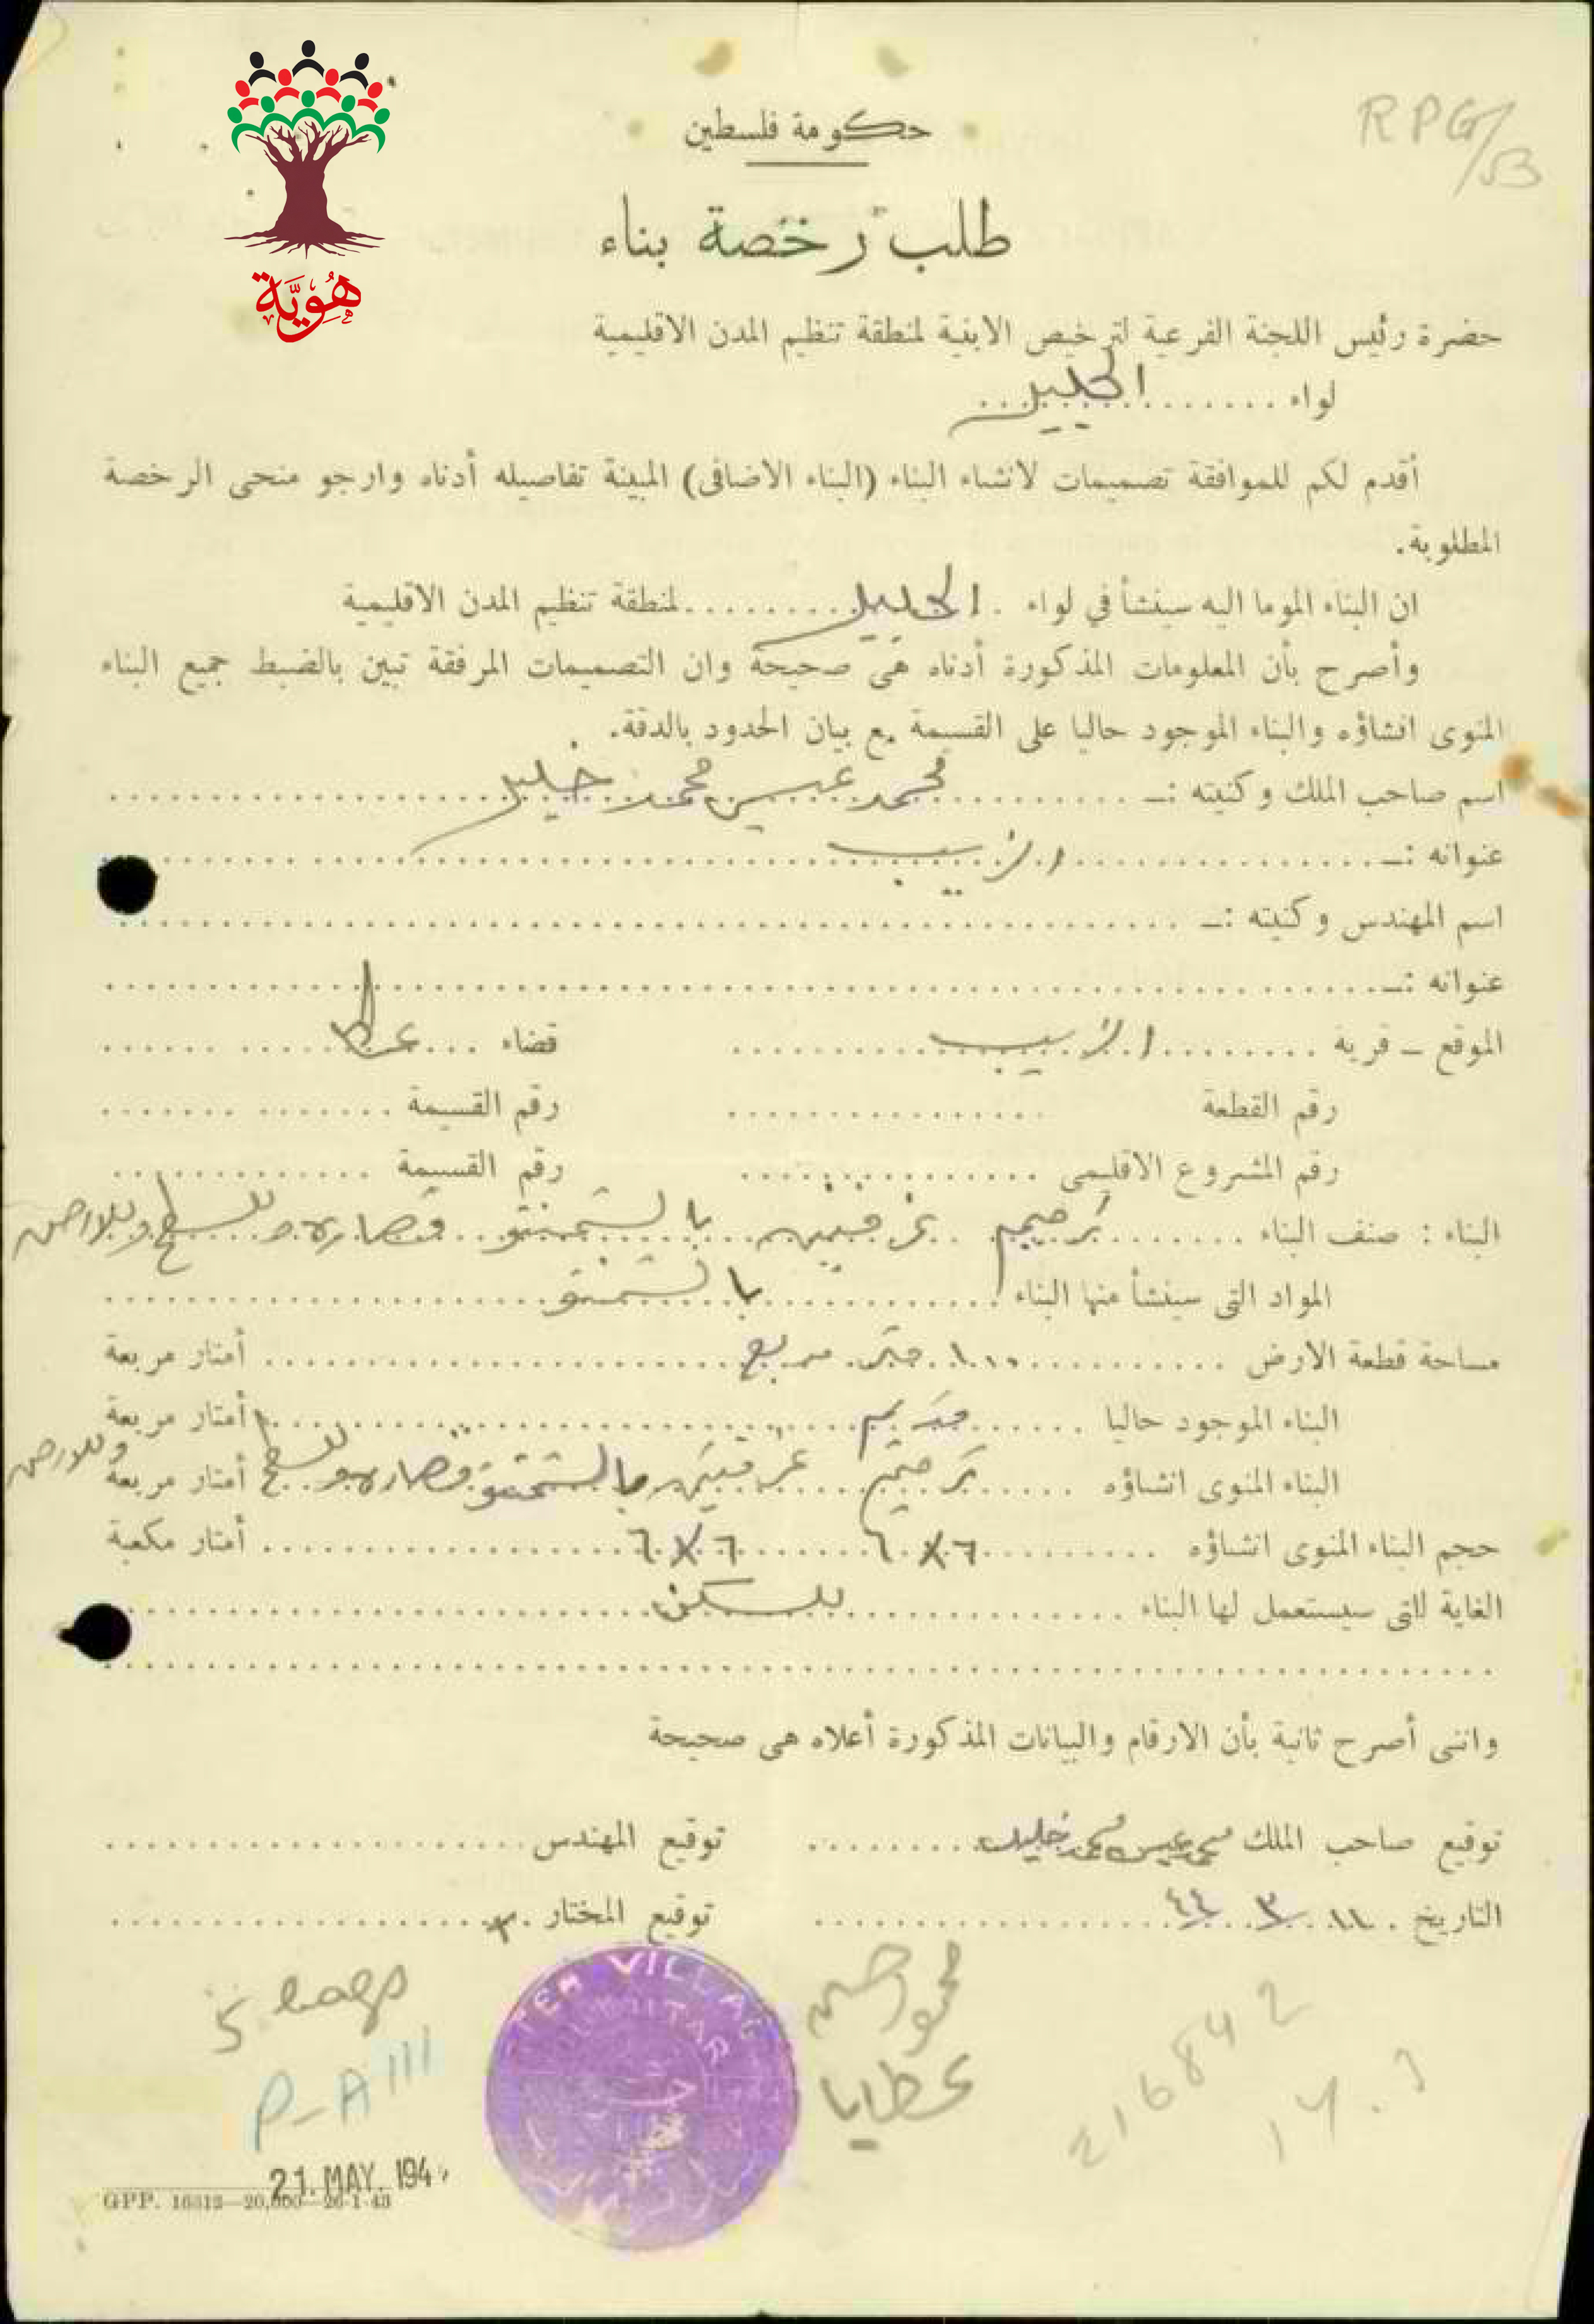 هُوِيَّة
RPG/53
حكومة فلسطين
طلب رخصة بناء
حضرة رئيس اللجنة الفرعية لترخيص الابنية لمنطقة تنظيم المدن الاقليمية
لواء الجليل
أقدم لكم للموافقة تصميمات لانشاء البناء (البناء الاضافى) المبينة تفاصيله أدناه وارجو منحى الرخصة
المطلوبة.
ان البناء الموما اليه سينشأ في لواء الجليل لمنطقة تنظيم المدن الاقليمية
وأصرح بأن المعلومات المذكورة أدناه هى صحيحة وان التصميمات المرفقة تبين بالضبط جميع البناء
المنوى انشاؤه والبناء الموجود حاليا على القسيمة مع بيان الحدود بالدقة.
اسم صاحب الملك وكنيته :ـ محمد عيسى محمد خليل
عنوانه :ـ الزيب
اسم المهندس وكنيته :ـ
عنوانه :ـ
الموقع ـ قرية الزيب قضاء عكا
رقم القطعة رقم القسيمة
رقم المشروع الاقليمى رقم القسيمة
البناء : صنف البناء ترميم غرفتين بالشمنتو قصاره وللسطح وللارض
المواد التى سينشأ منها البناء بالشمنتو
مساحة قطعة الارض ١٠٠ متر مربع أمتار مربعة
البناء الموجود حاليا قديم أمتار مربعة
البناء المنوى انشاؤه ترميم غرفتين بالشمنتو قصاره وللسطح وللارض أمتار مربعة
حجم البناء المنوى انشاؤه ٦×٦ ٦×٦ أمتار مكعبة
الغاية للتى سيستعمل لها البناء للسكن
واننى أصرح ثانية بأن الارقام والبيانات المذكورة أعلاه هى صحيحة
توقيع صاحب الملك محمد عيسى محمد خليل توقيع المهندس
التاريخ ١١ / ٣ / ٤٤ توقيع المختار
محمود حسن
عطايا
5 bags
P-A
216842
VILLAGE
21. MAY. 194
GPP. 16313—20,000—26-1-43